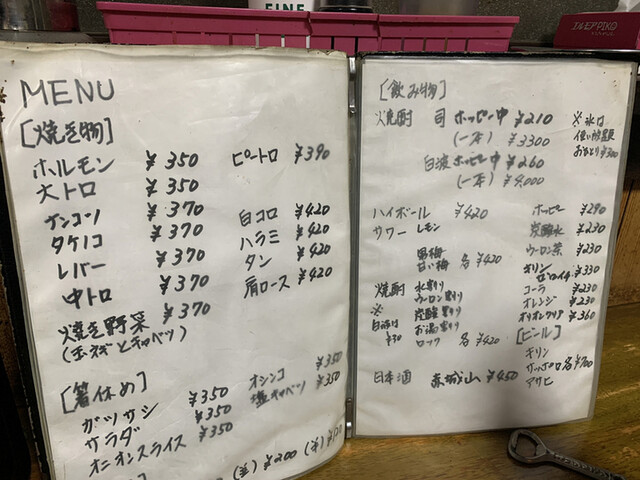 MENU
[焼き物]
ホルモン ¥350
大トロ ¥350
ナンコツ ¥370
タケノコ ¥370
レバー ¥370
中トロ ¥370
焼き野菜 ¥370
(玉ネギとキャベツ)
ピートロ ¥390
白コロ ¥420
ハラミ ¥420
タン ¥420
肩ロース ¥420
[箸休め]
ガツサシ ¥350
サラダ ¥350
オニオンスライス ¥350
オシンコ ¥350
塩キャベツ ¥350
¥200
[飲み物]
焼酎 司 ホッピー中 ¥210
(一本) ¥3300
白波 ホッピー中 ¥260
(一本) ¥4,000
※氷は
使い放題
お1人 ¥300
ハイボール ¥420
サワー レモン
男梅
甘い梅 各¥420
焼酎 水割り
※ ウーロン割り
白波は 炭酸割り
¥30 お湯割り
ロック 各¥420
日本酒 赤城山 ¥450
ホッピー ¥290
炭酸水 ¥230
ウーロン茶 ¥230
キリン
ゼロイチ ¥330
コーラ ¥230
オレンジ ¥230
オリオンクリア ¥360
[ビール]
キリン
サッポロ 各¥700
アサヒ
FINE
エルモアPIKO